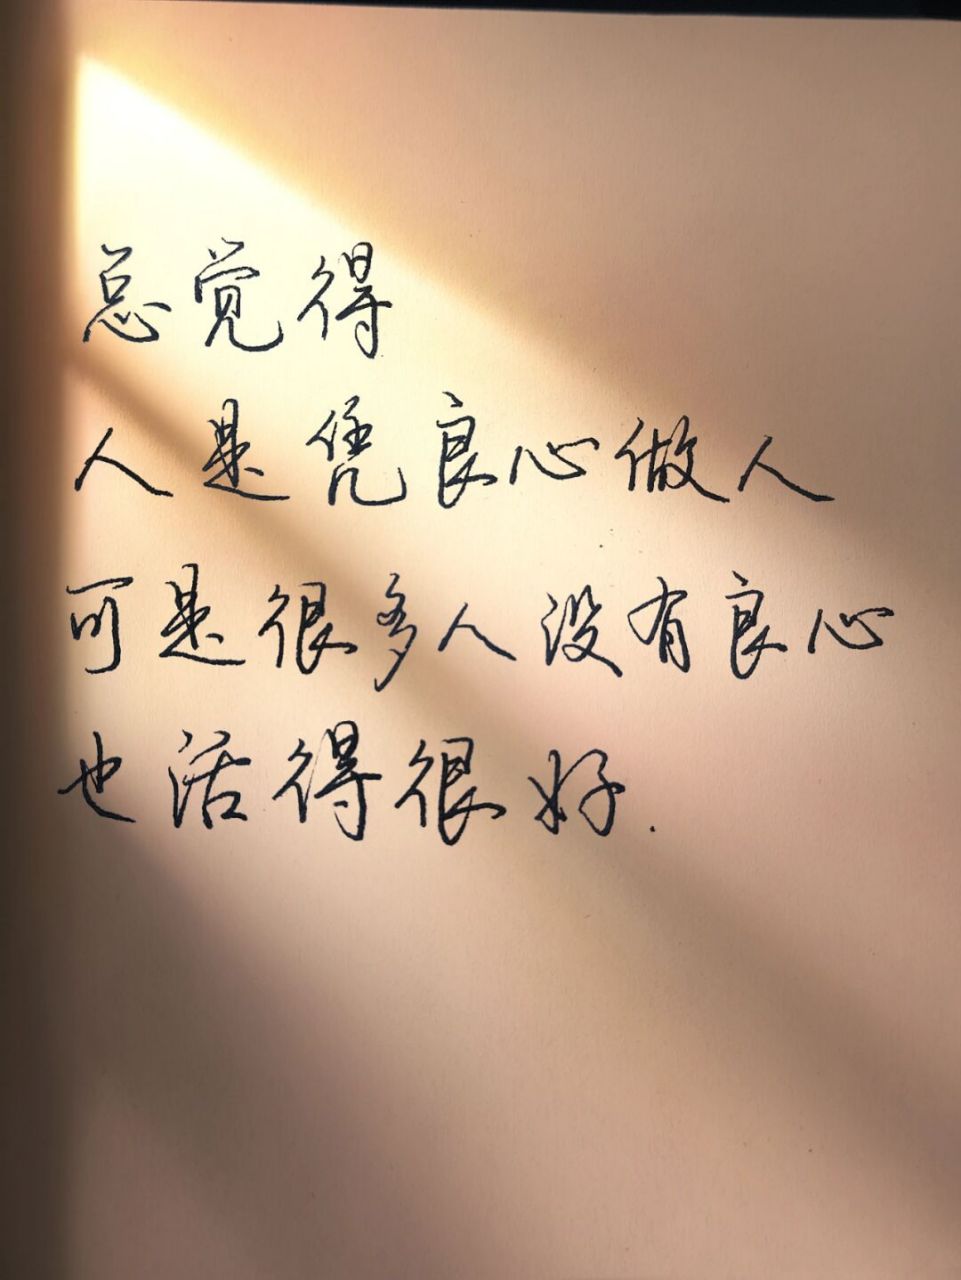 总觉得
人是凭良心做人
可是很多人没有良心
也活得很好.